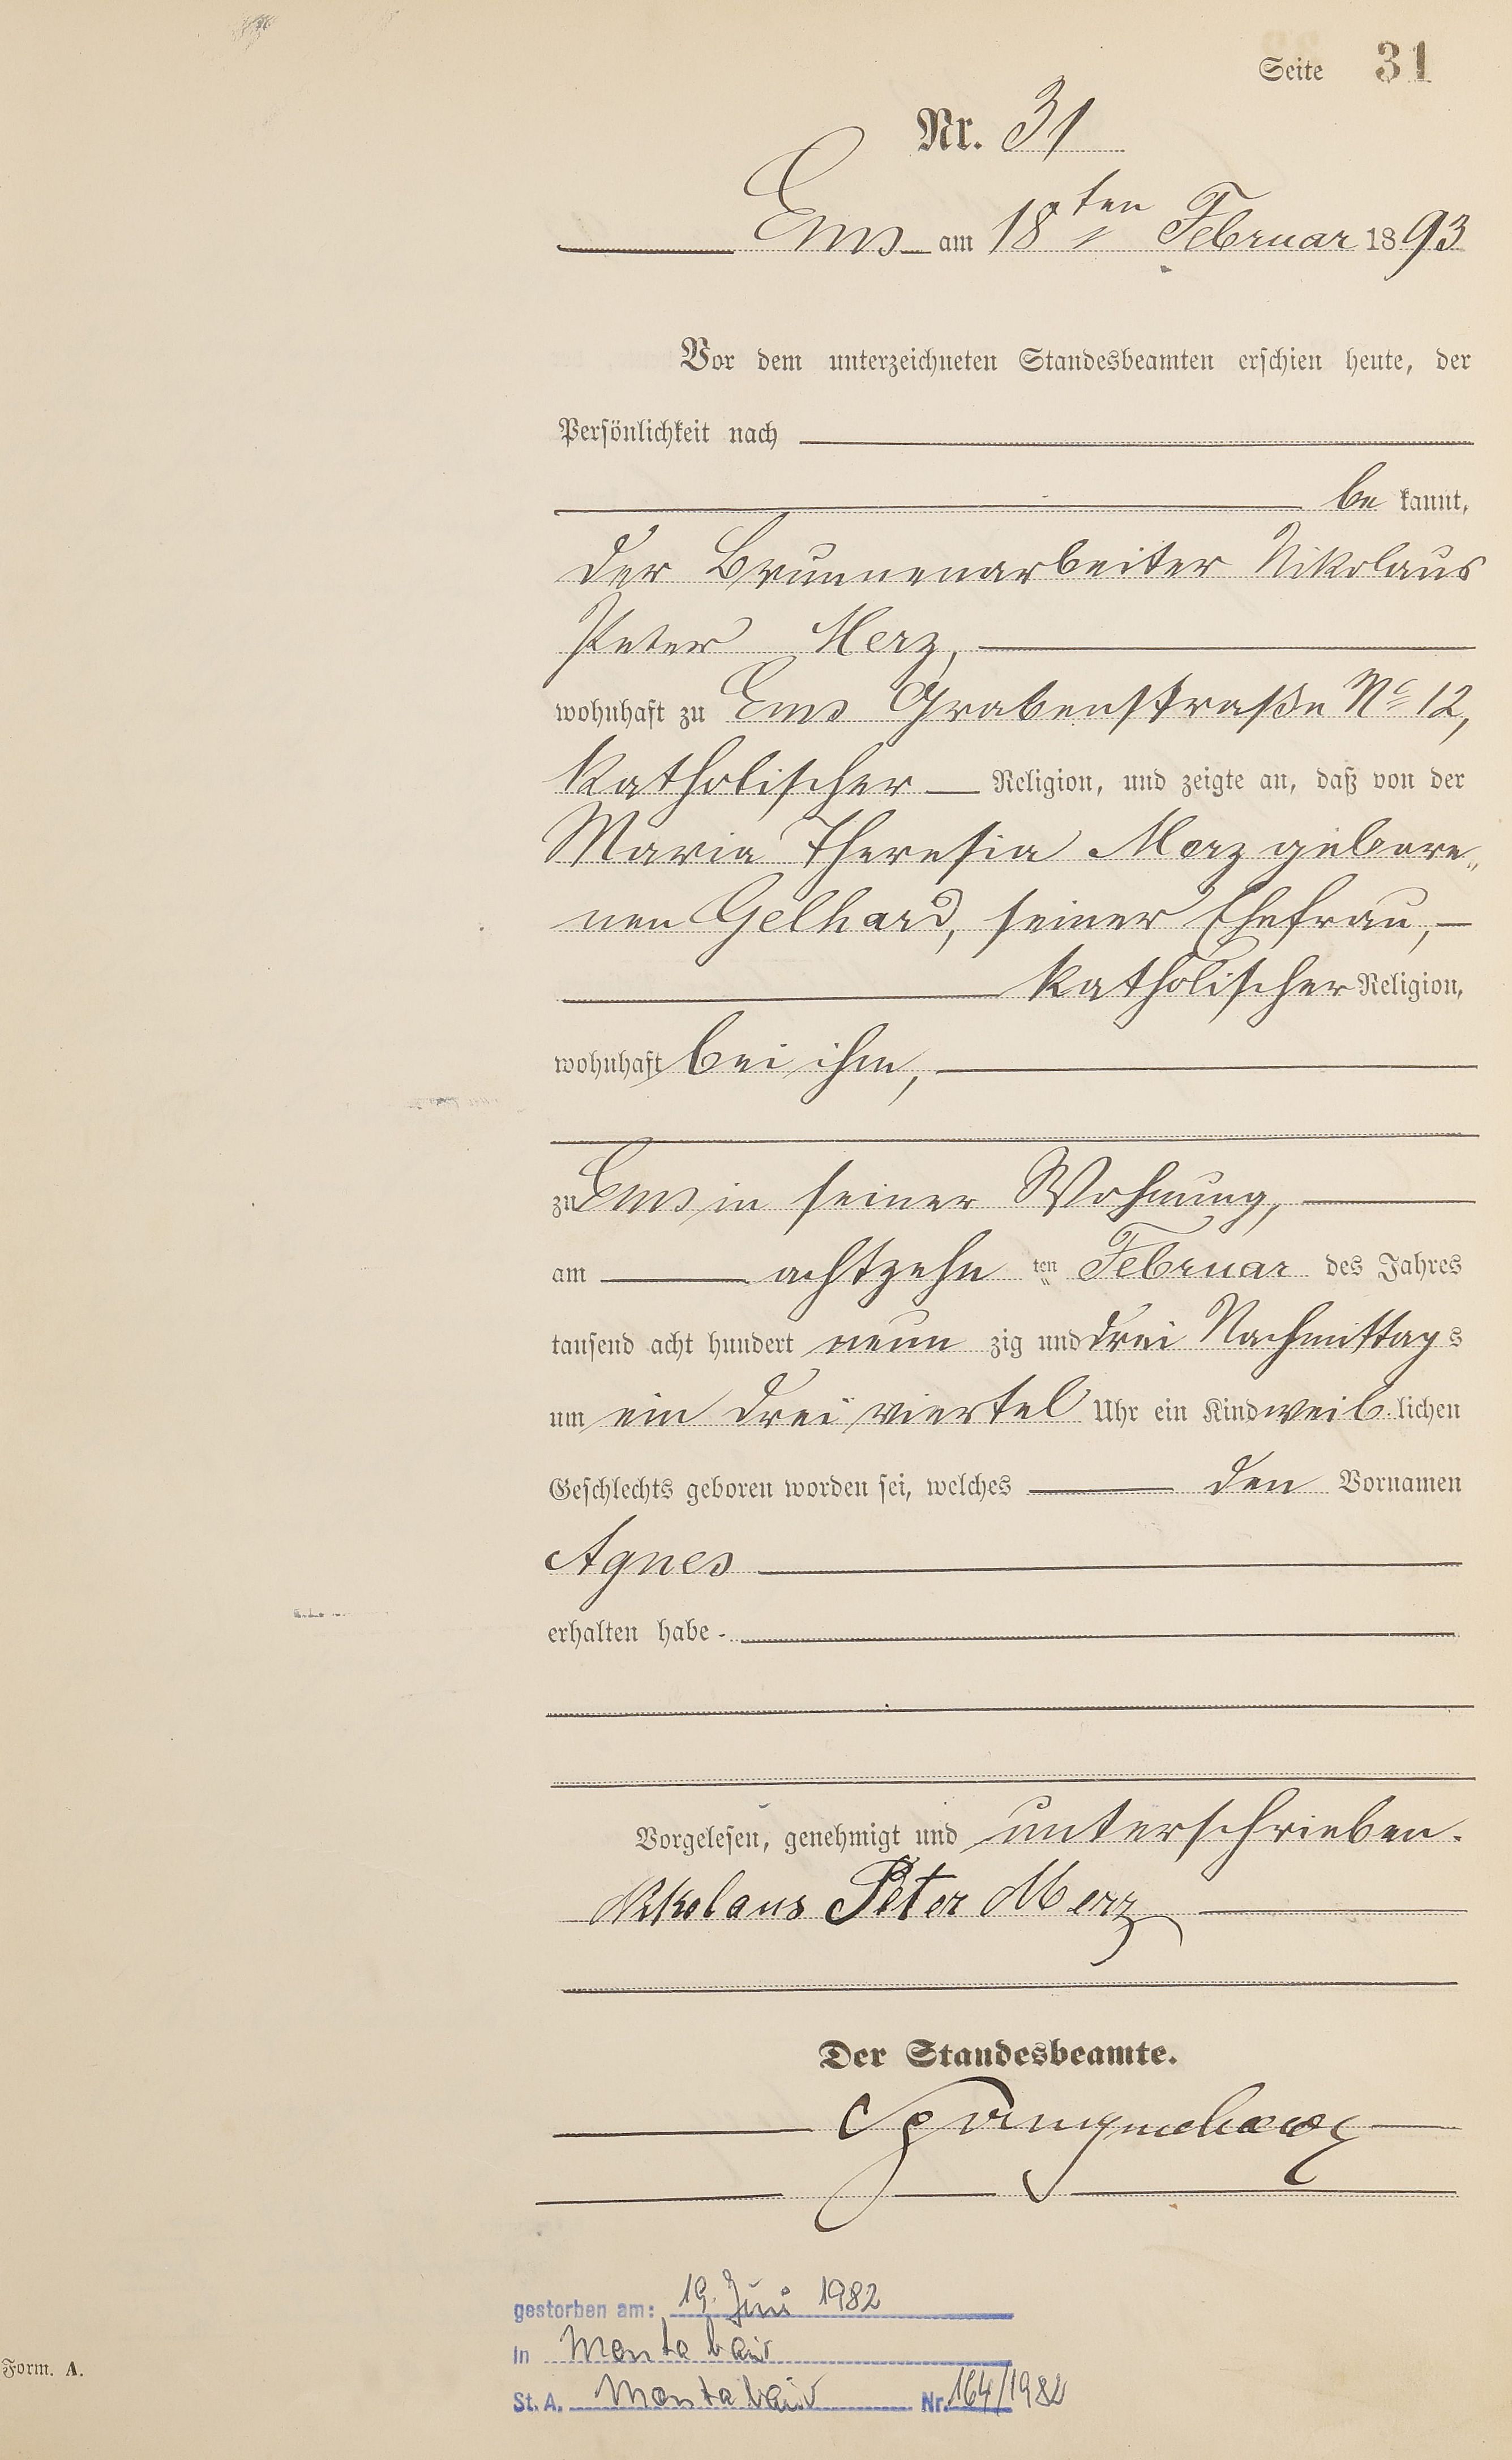 Seite 31
Nr. 31
Ems am 18ten Februar 1893
Vor dem unterzeichneten Standesbeamten erschien heute, der
Persönlichkeit nach
be kannt,
der Brunnenarbeiter Nikolaus
Peter Merz,
wohnhaft zu Ems Grabenstraße No 12,
katholischer Religion, und zeigte an, daß von der
Maria Theresia Merz gebore„
nen Gelhard, seiner Ehefrau,
katholischer Religion,
wohnhaft bei ihm,
zu Ems in seiner Wohnung,
am achtzehn ten Februar des Jahres
tausend acht hundert neun zig und drei Nachmittags
um ein drei viertel Uhr ein Kind weiblichen
Geschlechts geboren worden sei, welches den Vornamen
Agnes
erhalten habe
Vorgelesen, genehmigt und unterschrieben.
Nikolaus Peter Merz
Der Standesbeamte.
gestorben am: 19. Juni 1982
in Montabaur
St. A. Montabaur Nr. 164/1982
Form. A.